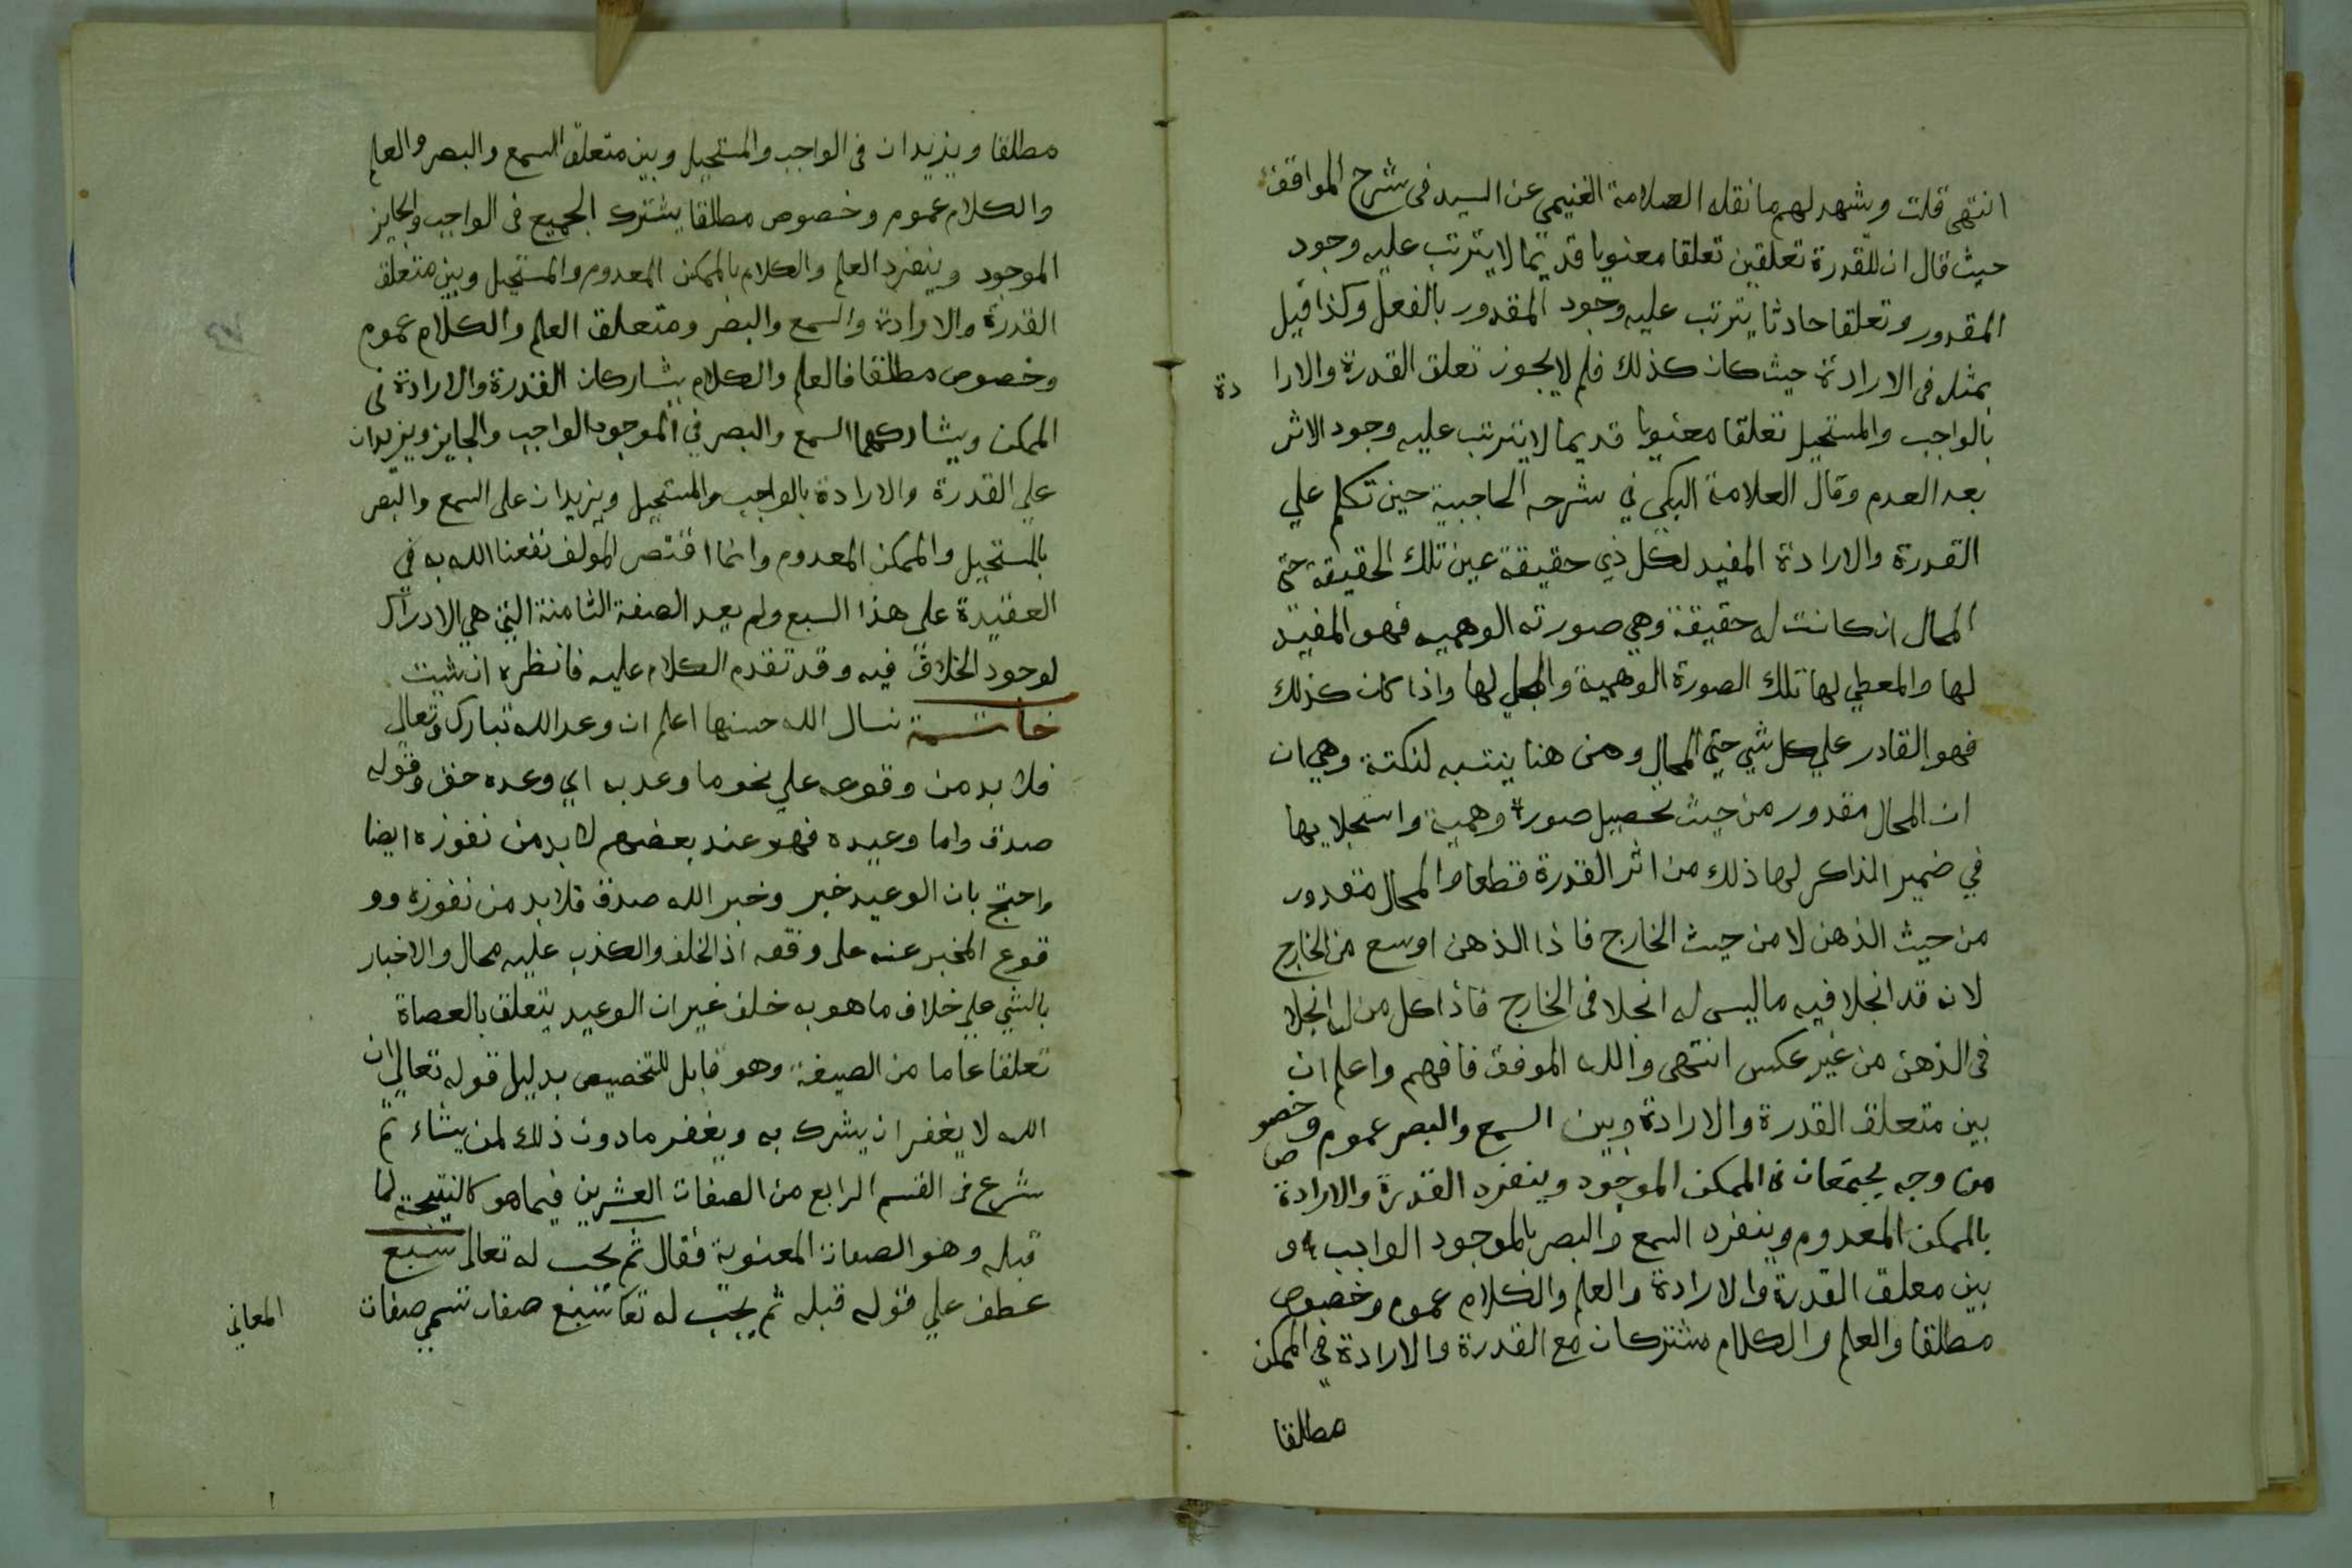 انتهى قلت ويشهد لهم ما نقله العلامة الغنيمي عن السيد فى شرح المواقف
حيث قال ان للقدرة تعلقين تعلقا معنويا قديما لا يترتب عليه وجود
المقدور وتعلقا حادثا يترتب عليه وجود المقدور بالفعل وكذا قيل
بمثله فى الارادة حيث كان كذلك فلم لا يجوز تعلق القدرة والارا دة
بالواجب والمستحيل تعلقا معنويا قديما لا يترتب عليه وجود الاثر
بعد العدم وقال العلامة البكى في شرحه الحاجبية حين تكلم علي
القدرة والارادة المفيد لكل ذي حقيقة عين تلك الحقيقة حتى
المحال ان كانت له حقيقة وهي صورته الوهميه فهو المفيد
لها والمعطي لها تلك الصورة الوهمية والمجلي لها واذا كان كذلك
فهو القادر علي كل شي حتي المحال ومن هنا ينتبه لنكتة وهي ان
ان المحال مقدور من حيث تحصيل صورة وهمية واستجلايها
في ضمير الذاكر لها ذلك من اثر القدرة قطعا والمحال مقدور
من حيث الذهن لا من حيث الخارج فاذا الذهن اوسع من الخارج
لانه قد انجلا فيه ما ليس له انجلا فى الخارج فاذا كل من له انجلا
فى الذهن من غير عكس انتهى والله الموفق فافهم واعلم ان
بين متعلق القدرة والارادة وبين السمع والبصر عموم وخصوص
من وجه يجتمعان فى الممكن الموجود وينفرد القدرة والارادة
بالممكن المعدوم وينفرد السمع والبصر بالموجود الواجب و
بين معلق القدرة والارادة والعلم والكلام عموم وخصوص
مطلقا والعلم والكلام مشتركان مع القدرة والارادة في الممكن
مطلقا
مطلقا ويزيدان فى الواجب والمستحيل وبين متعلق السمع والبصر والعلم
والكلام عموم وخصوص مطلقا يشترك الجميع فى الواجب والجايز
الموجود وينفرد العلم والكلام بالممكن المعدوم والمستحيل وبين متعلق
القدرة والارادة والسمع والبصر ومتعلق العلم والكلام عموم
وخصوص مطلقا فالعلم والكلام يشاركان القدرة والارادة فى
الممكن ويشاركهما السمع والبصر في الموجود الواجب والجايز ويزيدان
علي القدرة والارادة بالواجب والمستحيل ويزيدان على السمع والبصر
بالمستحيل والممكن المعدوم وانما اقتصر المولف نفعنا الله به في
العقيدة على هذا السبع ولم يعد الصفة الثامنة التي هي الادراك
لوجود الخلاف فيه وقد تقدم الكلام عليه فانظره ان شيت
خاتمة نسال الله حسنها اعلم ان وعد الله تبارك وتعالي
فلا بد من وقوعه علي نحو ما وعد به اي وعده حق وقوله
صدق واما وعيده فهو عند بعضهم لا بد من نفوزه ايضا
واحتج بان الوعيد خبر وخبر الله صدق فلا بد من نفوزه وو
قوع المخبر عنه على وفقه اذ الخلف والكذب عليه محال والاخبار
بالشي علي خلاف ما هو به خلف غير ان الوعيد يتعلق بالعصاة
تعلقا عاما من الصيغة وهو قابل للتخصيص بدليل قوله تعالي ان
الله لا يغفر ان يشرك به ويغفر ما دون ذلك لمن يشاء ثم
شرع فى القسم الرابع من الصفات العشرين فيما هو كالنتيجة لما
قبله وهو الصفات المعنوية فقال ثم يجب له تعالى سبع
عطف علي قوله قبله ثم يجب له تعا سبع صفات تسمي صفات
المعاني